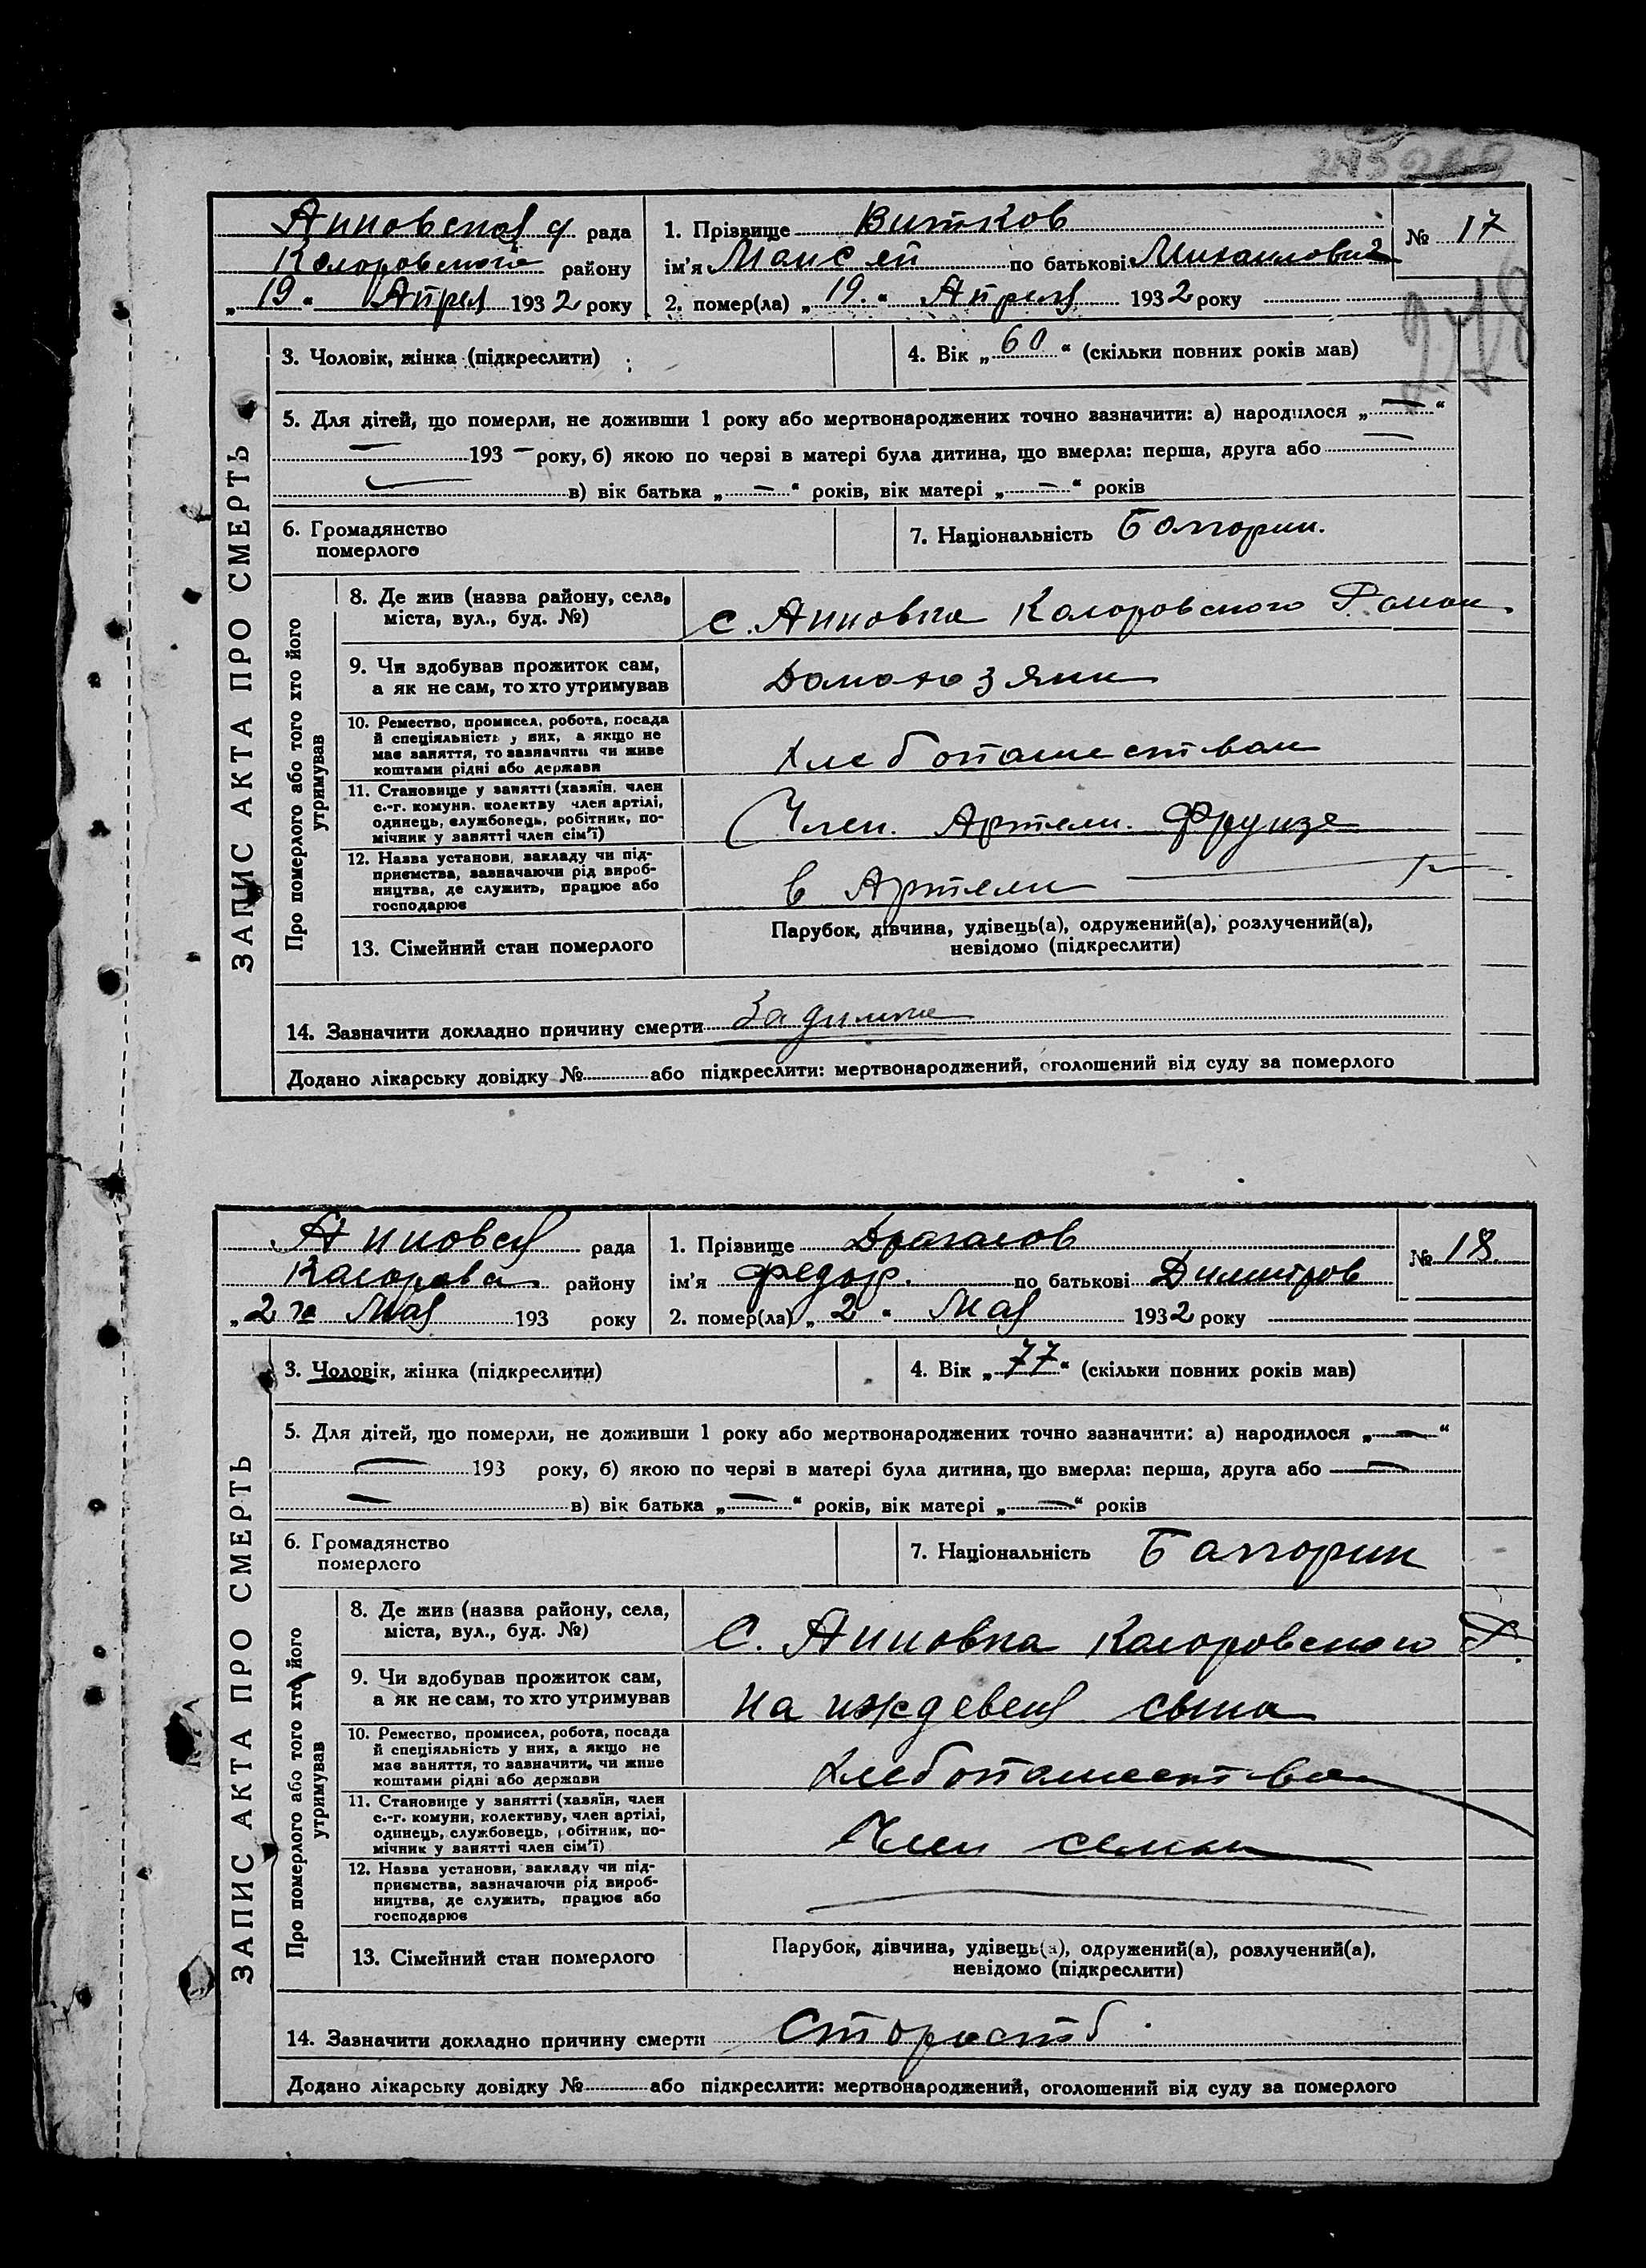 Анновская рада
Коларовского району
„19“ Апреля 1932 року
1. Прізвище Витков
№ 17
ім'я Моисей по батькові Михаилович
2. помер(ла) „19.“ Апреля 1932 року
ЗАПИС АКТА ПРО СМЕРТЬ
3. Чоловік, жінка (підкреслити)
4. Вік „60“ (скільки повних років мав)
5. Для дітей, що померли, не доживши 1 року або мертвонароджених точно зазначити: а) народилося „—“
— 193— року, б) якою по черзі в матері була дитина, що вмерла: перша, друга або —
в) вік батька „—“ років, вік матері „—“ років
6. Громадянство
померлого
7. Національність Болгорин.
Про померлого або того хто його
утримував
8. Де жив (назва району, села,
міста, вул., буд. №)
с. Анновка Коларовского Район
9. Чи здобував прожиток сам,
а як не сам, то хто утримував
Домохозяин
10. Ремество, промисел, робота, посада
й спеціяльність у них, а якщо не
має заняття, то зазначити чи живе
коштами рідні або держави
хлебопашеством
11. Становище у занятті (хазяїн, член
с.-г. комуни, колективу член артілі,
одинець, службовець, робітник, по-
мічник у занятті член сім'ї)
Член. Артели. Фрунзе
12. Назва установи, закладу чи під-
приємства, зазначаючи рід вироб-
ництва, де служить, працює або
господарює
в Артели —
13. Сімейний стан померлого
Парубок, дівчина, удівець(а), одружений(а), розлучений(а),
невідомо (підкреслити)
14. Зазначити докладно причину смерти
Додано лікарську довідку № або підкреслити: мертвонароджений, оголошений від суду за померлого
рада
району
„2го Мая 193 року
1. Прізвище Драгалов
№ 18.
ім'я Федор. по батькові Димитров
2. помер(ла) „2“ Мая 1932 року
ЗАПИС АКТА ПРО СМЕРТЬ
3. Чоловік, жінка (підкреслити)
4. Вік „77“ (скільки повних років мав)
5. Для дітей, що померли, не доживши 1 року або мертвонароджених точно зазначити: а) народилося „—“
— 193 року, б) якою по черзі в матері була дитина, що вмерла: перша, друга або —
— в) вік батька „—“ років, вік матері „—“ років
6. Громадянство
померлого
7. Національність Балгорин
Про померлого або того хто його
утримував
8. Де жив (назва району, села,
міста, вул., буд. №)
С. Анновка Каларовского Р.
9. Чи здобував прожиток сам,
а як не сам, то хто утримував
на иждевеня сына
10. Ремество, промисел, робота, посада
й спеціяльність у них, а якщо не
має заняття, то зазначити, чи живе
коштами рідні або держави
11. Становище у занятті (хазяїн, член
с.-г. комуни, колективу, член артілі,
одинець, службовець, робітник, по-
мічник у занятті член сім'ї)
Член семьи
12. Назва установи, закладу чи під-
приємства, зазначаючи рід вироб-
ництва, де служить, працює або
господарює
13. Сімейний стан померлого
Парубок, дівчина, удівець(а), одружений(а), розлучений(а),
невідомо (підкреслити)
14. Зазначити докладно причину смерти Сторость
Додано лікарську довідку № або підкреслити: мертвонароджений, оголошений від суду за померлого